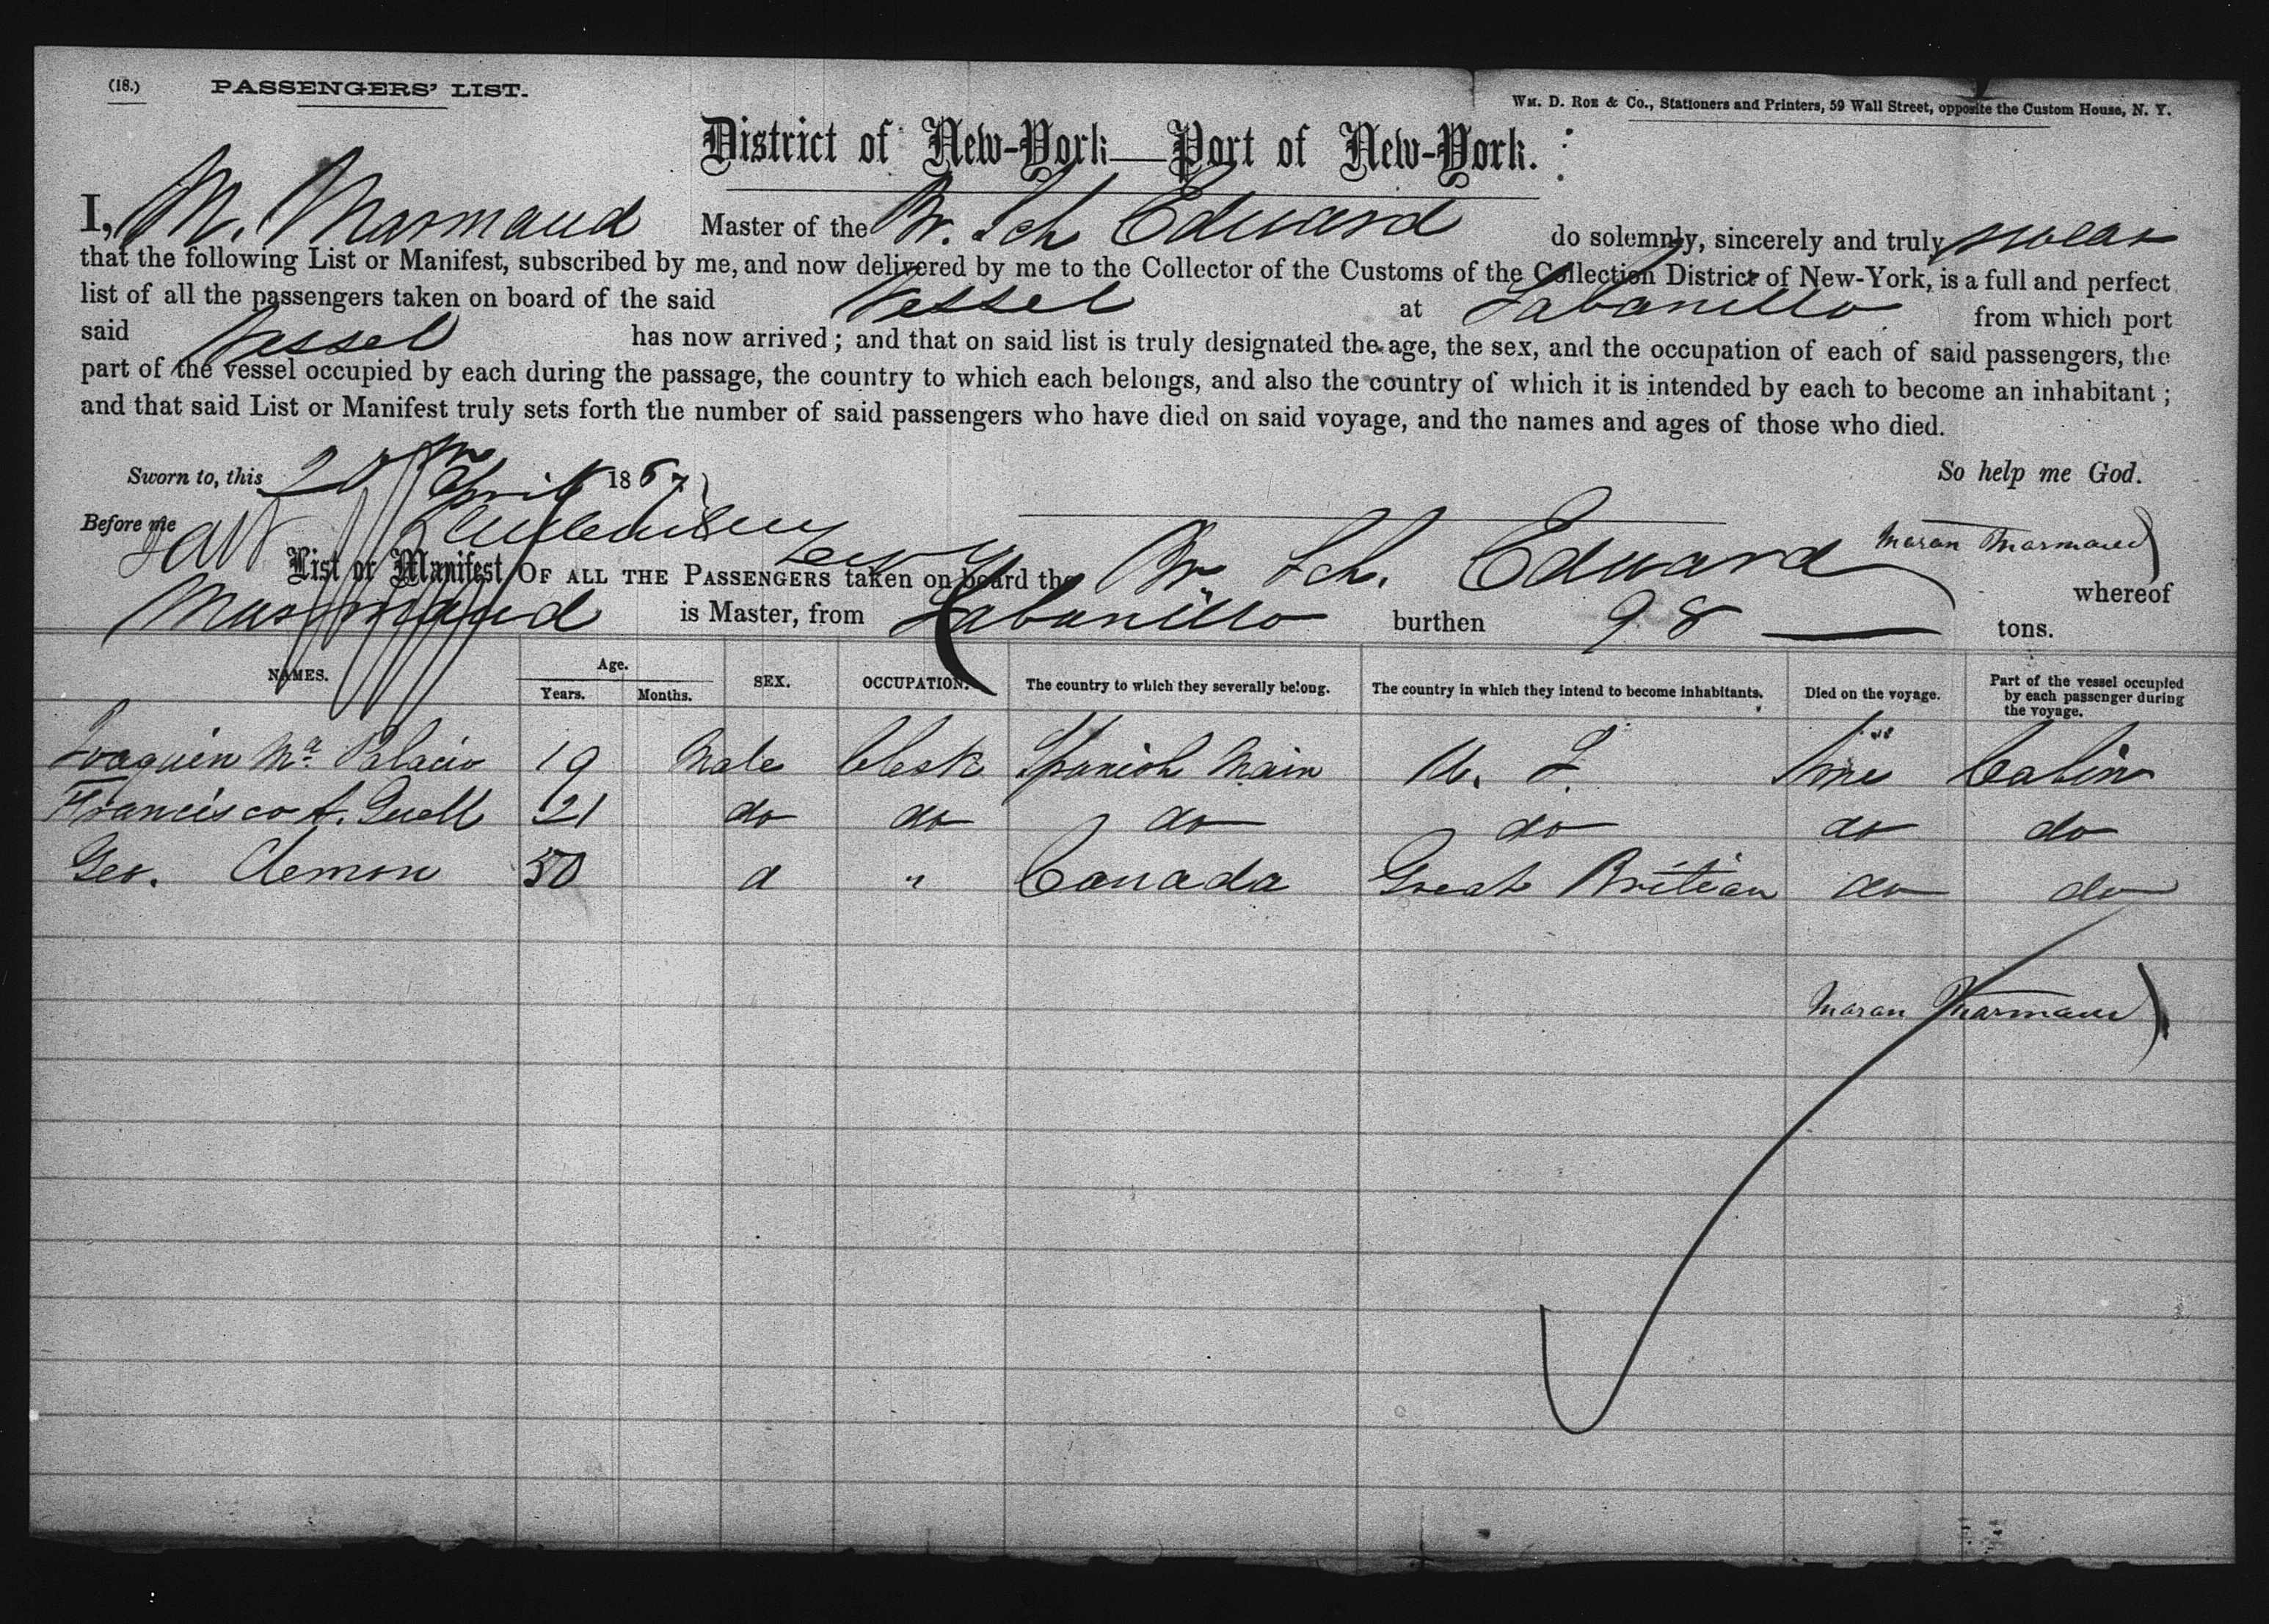 (18.) PASSENGERS' LIST.
Wm. D. Roe & Co., Stationers and Printers, 59 Wall Street, opposite the Custom House, N. Y.
District of New-York—Port of New-York.
I, M. Marmaud Master of the Br. Sch Edward do solemnly, sincerely and truly swear
that the following List or Manifest, subscribed by me, and now delivered by me to the Collector of the Customs of the Collection District of New-York, is a full and perfect
list of all the passengers taken on board of the said Vessel at Sabanillo from which port
said Vessel has now arrived; and that on said list is truly designated the age, the sex, and the occupation of each of said passengers, the
part of the vessel occupied by each during the passage, the country to which each belongs, and also the country of which it is intended by each to become an inhabitant;
and that said List or Manifest truly sets forth the number of said passengers who have died on said voyage, and the names and ages of those who died.
Sworn to, this April 1867 So help me God.
Before me
Maran Marmaud
List or Manifest OF ALL THE PASSENGERS taken on board the Br Sch. Edward whereof
Marmaud is Master, from Sabanillo burthen 98 tons.
NAMES. Age. Years. Months. SEX. OCCUPATION. The country to which they severally belong. The country in which they intend to become inhabitants. Died on the voyage. Part of the vessel occupied by each passenger during the voyage.
Joaquin Ma Palacio 19 Male Clerk Spanish Main U. S. Cabin
Francisco A. Guell 21 do do do do do do
Geo. Clemon 50 d " Canada Great Britian do do
Maran Marmaud